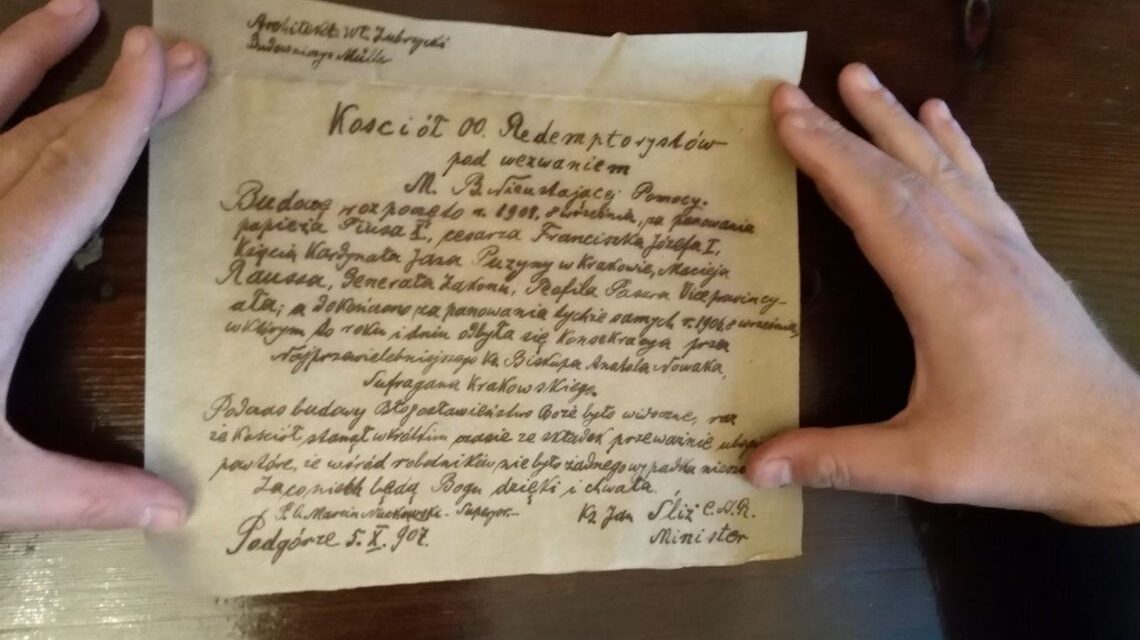 Architekt Wł. Zubrzycki
Budowniczy Mülla
Kościół OO. Redemptorystów
pod wezwaniem
M. B. Nieustającej Pomocy.
Budowę rozpoczęto r. 1901. 8 września, za panowania
papieża Piusa X, cesarza Franciszka Józefa I,
Księcia Kardynała Jana Puzyny w Krakowie, Macieja
Raussa, Generała Zakonu, Teofila Pasura Viceprowincy-
ała; a dokończono za panowania tychże samych r. 1906, 8 września,
w którym to roku i dniu odbyła się konsekracya prze
Najprzewielebniejszego Ks. Biskupa Anatola Nowaka,
Sufragana Krakowskiego.
Podczas budowy Błogosławieństwo Boże było widoczne, raz
że Kościół stanął w krótkim czasie ze składek przeważnie
powtóre, że wśród robotników nie było żadnego wypadku
Za co niech będą Bogu dzięki i chwała.
P. C. Marcin Nuckowski - Superyor. Ks. Jan Śliż C.SS.R.
Podgórze 5. X. 907. Minister